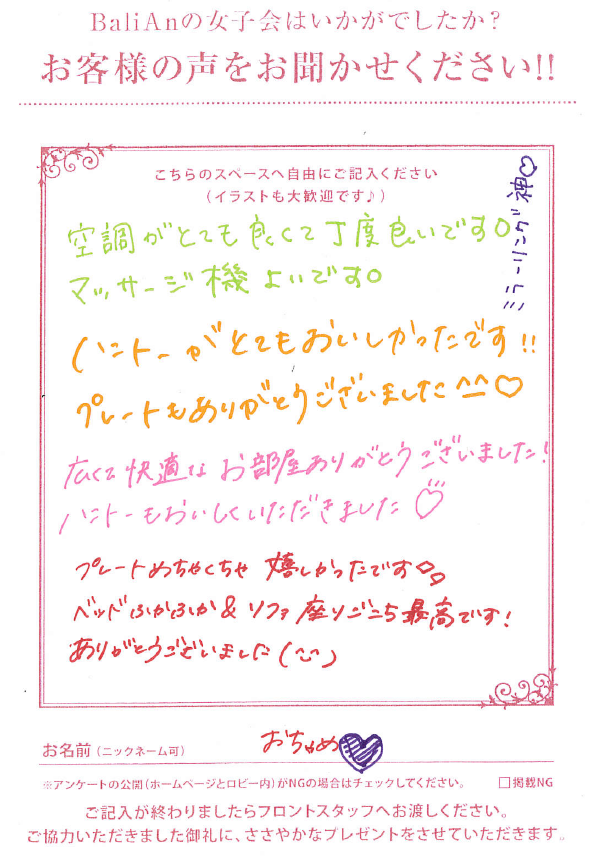 BaliAnの女子会はいかがでしたか？
お客様の声をお聞かせください!!
こちらのスペースへ自由にご記入ください
（イラストも大歓迎です♪）
ミラーリング神♡
空調がとても良くて丁度良いです○
マッサージ機よいです○
ハントーがとてもおいしかったです!!
プレートもありがとうございました^_^♡
広くて快適なお部屋ありがとうございました!
ハントーもおいしくいただきました♡
プレートめちゃくちゃ嬉しかったです♡
ベッドふかふか&ソファ座りごこち最高です!
ありがとうございました(^-^)
お名前（ニックネーム可）
おちゅめ♥
※アンケートの公開（ホームページとロビー内）がNGの場合はチェックしてください。 □掲載NG
ご記入が終わりましたらフロントスタッフへお渡しください。
ご協力いただきました御礼に、ささやかなプレゼントをさせていただきます。